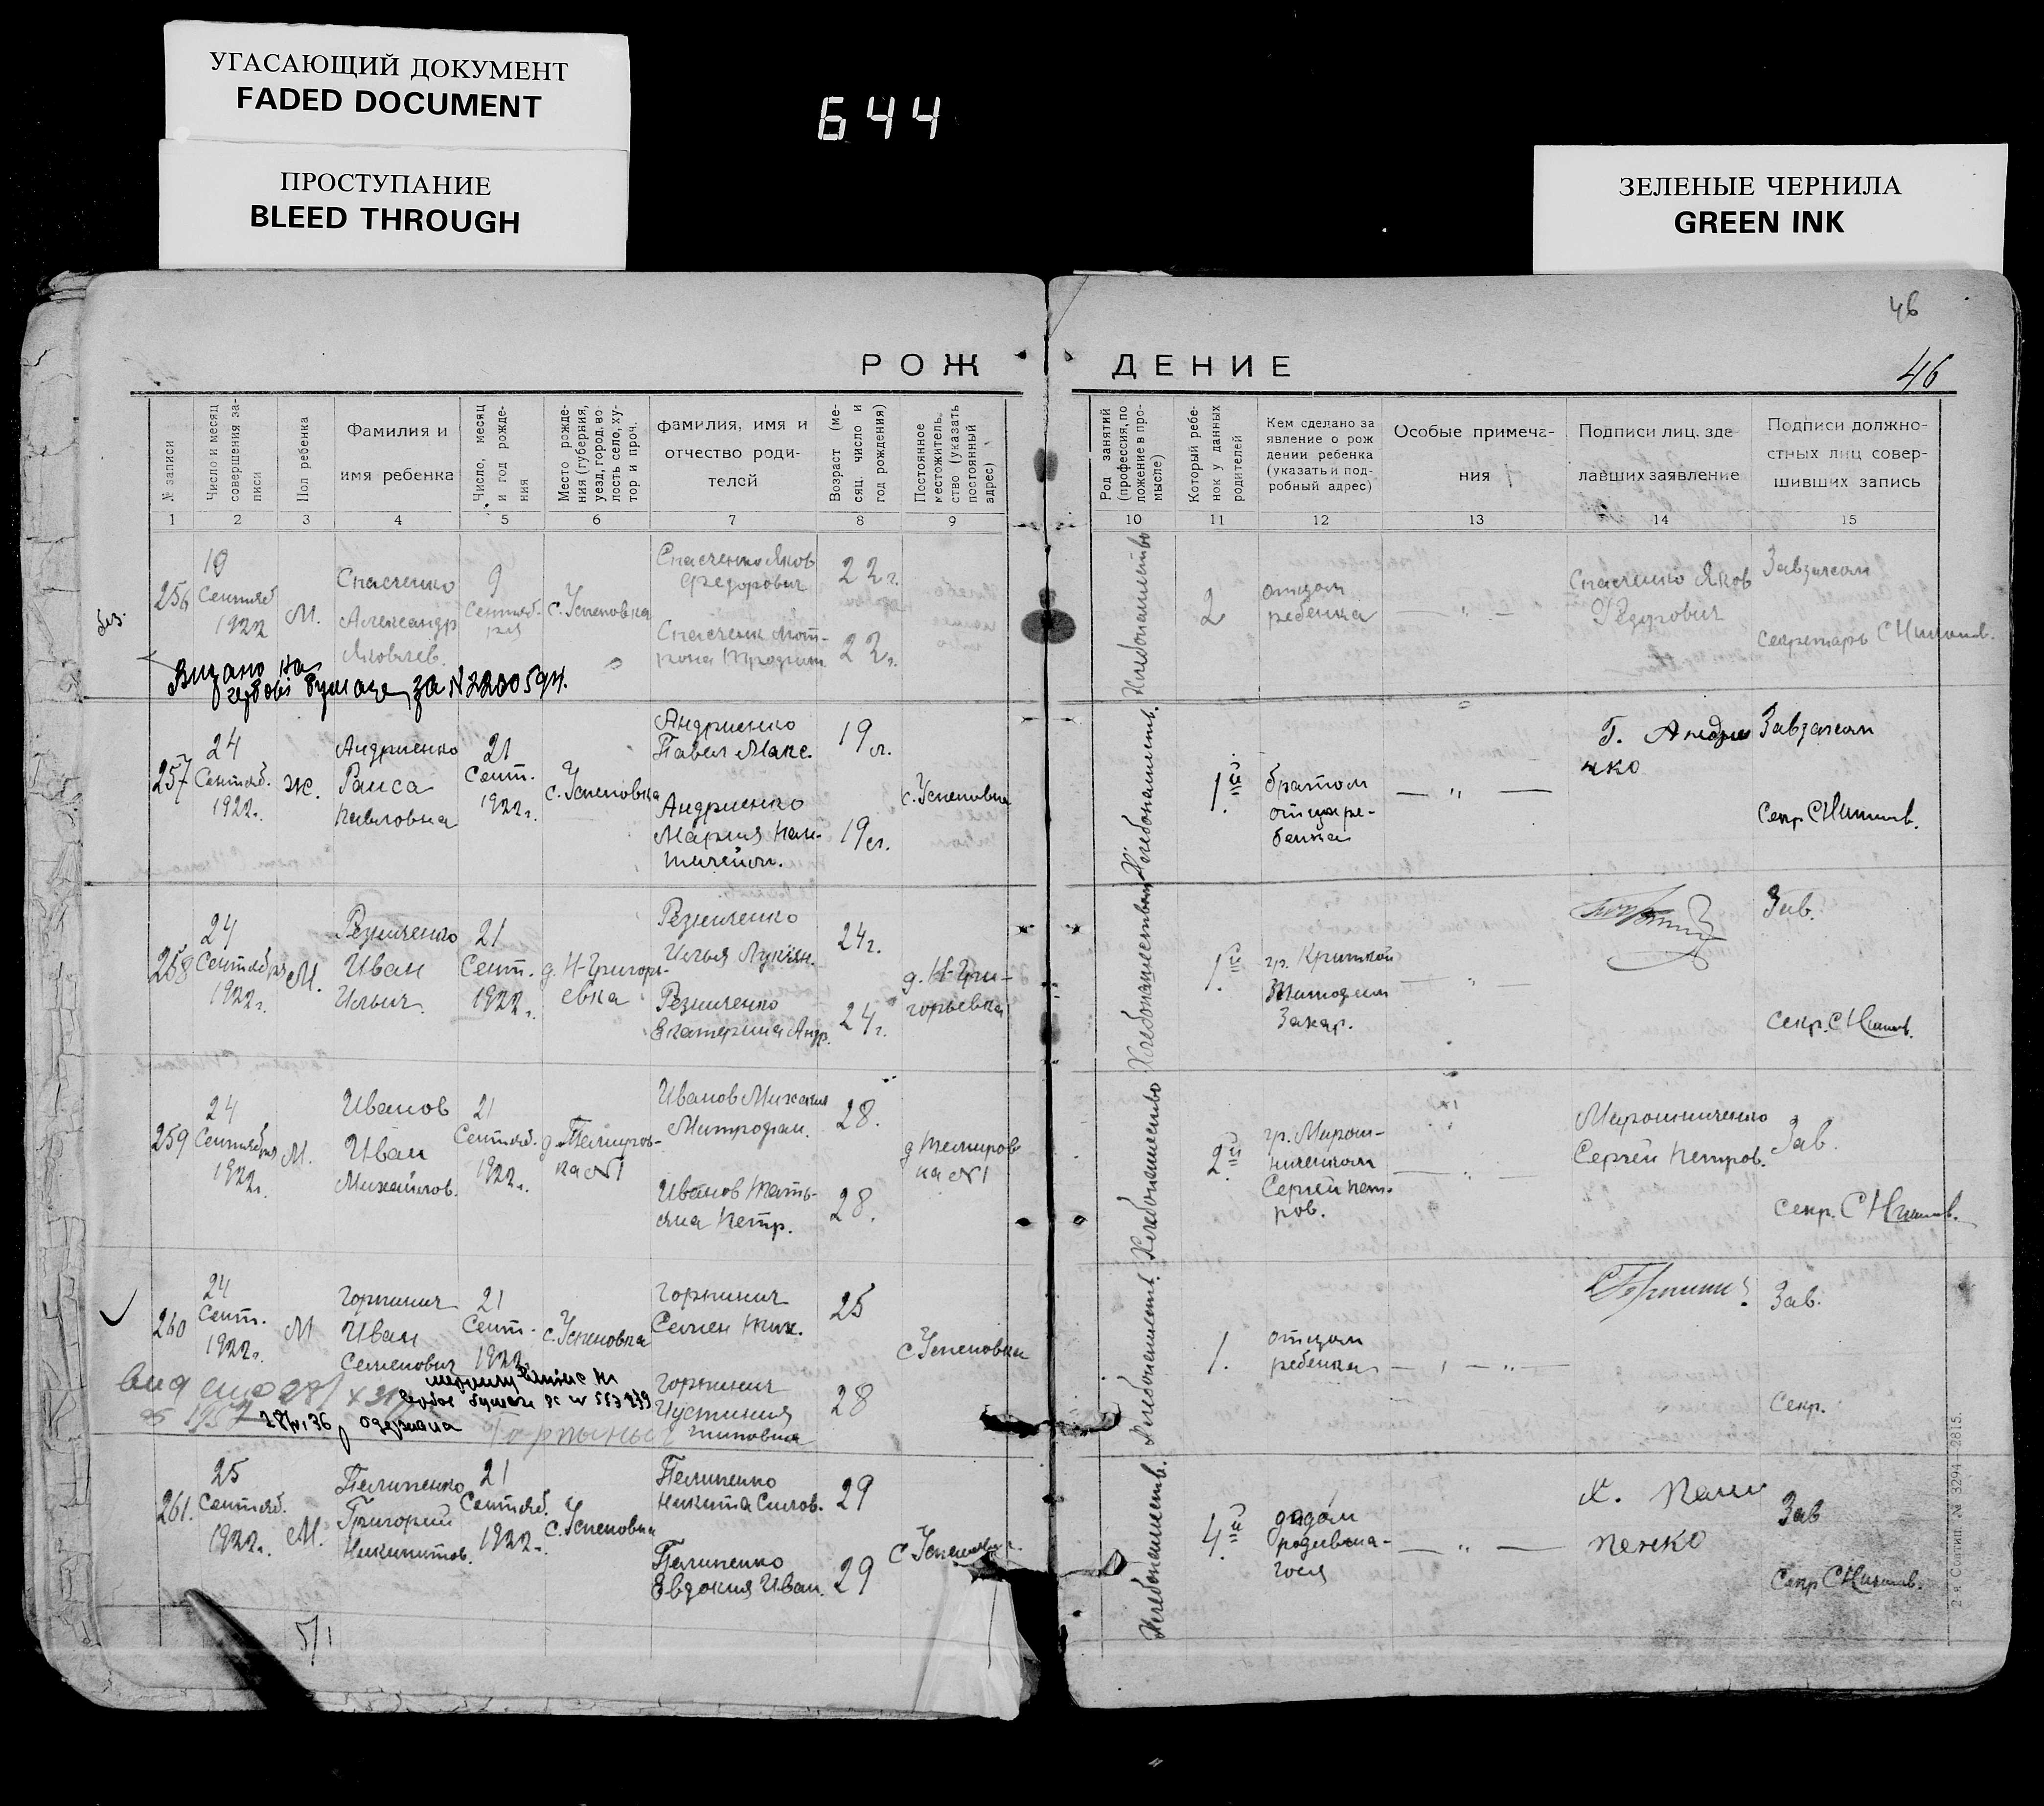 УГАСАЮЩИЙ ДОКУМЕНТ
FADED DOCUMENT
ПРОСТУПАНИЕ
BLEED THROUGH
644
ЗЕЛЕНЫЕ ЧЕРНИЛА
GREEN INK
46
РОЖДЕНИЕ
46
№ записи
Число и месяц
совершения за-
писи
Пол ребенка
Фамилия и
имя ребенка
Число, месяц
и год рожде-
ния
Место рожде-
ния (губерния,
уезд, город, во-
лость село, ху-
тор и проч.
фамилия, имя и
отчество роди-
телей
Возраст (ме-
сяц, число и
год рождения)
Постоянное
местожитель-
ство (указать
постоянный
адрес)
Род занятий
(профессия, по
ложение в про-
мысле)
Который ребе-
нок у данных
родителей
Кем сделано за
явление о рож
дении ребенка
(указать и под-
робный адрес)
Особые примеча-
ния
Подписи лиц, зде
лавших заявление
Подписи должно-
стных лиц совер-
шивших запись
1 2 3 4 5 6 7 8 9 10 11 12 13 14 15
256
19
Сентяб
1922
М.
Спасченко
Александр
Яковлев.
9
Сентяб-
ря
с. Успеновка
Спасченко Яков
Федорович
22 г.
22 г.
Хлебопашество
2
отцом
ребенка
— " —
Спасченко Яков
Федорович
Завзагсом
Секретарь
257
24
Сентяб.
1922 г.
ж.
Андриенко
Раиса
Павловна
21
Сент.
1922 г.
с. Успеновка
Андриенко
Павел Макс.
19 л.
Андриенко
Мария Пан-
телеймон.
19 л.
с. Успеновка
Хлебопашеств.
1й
братом
отца ре-
бенка
— " —
Завзагсом
Секр.
258
24
Сентября
1922 г.
М.
Резниченко
Иван
Ильич
21
Сент.
1922 г.
д. Н-Григорь-
евка
Резниченко
Илья Лукьян.
24 г.
Резниченко
Екатерина Андр.
24 г.
д. Н-Гри-
горьевка
Хлебопашеством
1й
Захар.
— " —
Зав.
Секр.
259
24
Сентября
1922 г.
М.
Иванов
Иван
Михайлов.
21
Сентяб.
1922 г.
д. Темиров-
ка № 1
Иванов Михаил
Митрофан.
28.
Иванов Тать-
яна Петр.
28.
д. Темиров
ка № 1
Хлебопашество
2й
гр. Мирош-
ниченком
Сергей Пет-
ров.
— " —
Мирошниченко
Сергей Петров.
Зав.
Секр.
260
24
Сент.
1922 г.
М
Горпинич
Иван
Семенович
21
Сент.
1922 г.
с. Успеновка
Горпинич
Семен Тих.
25
Горпинич
Устиния
28
с Успеновка
Хлебопашеств.
1.
отцом
ребенка
— " —
Зав.
Секр.
261.
25
Сентяб.
1922 г.
М.
Пелипенко
Григорий
Никитов.
21
Сентяб.
1922 г.
с. Успеновка
Пелипенко
Никита Силов.
29
Пелипенко
Евдокия Иван.
29
с Успеновка
Хлебопашеств.
4й
дядом
родивша-
гося
— " —
Зав
Секр
5/1